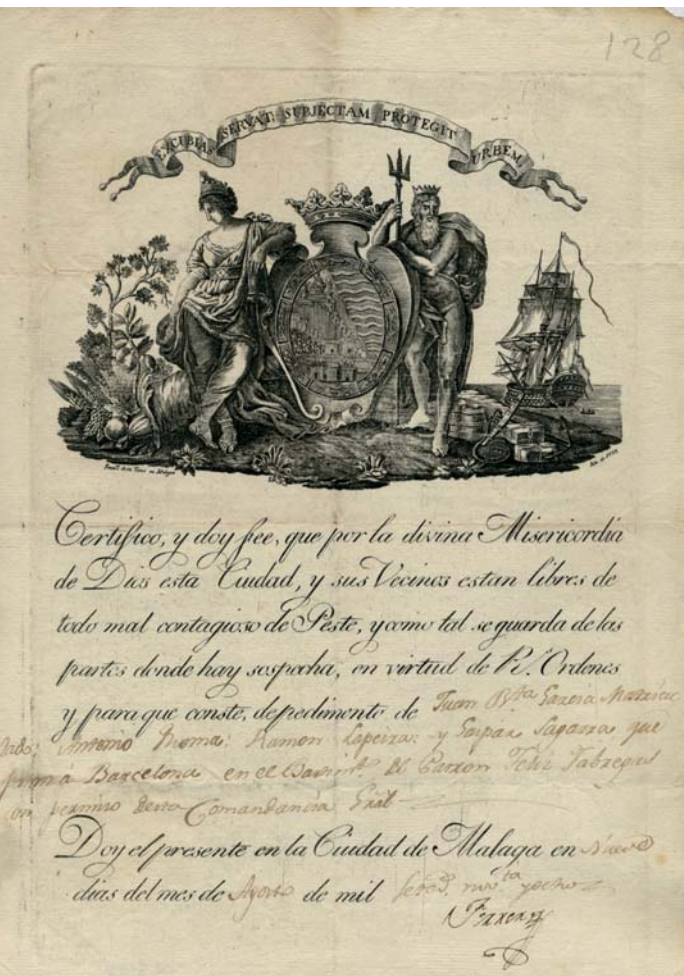 128
EXCUBIAS SERVAT: SUBJECTAM PROTEGIT URBEM.
Certifico, y doy fee, que por la divina Misericordia
de Dios esta Ciudad, y sus Vecinos estan libres de
todo mal contagioso de Peste, y como tal se guarda de las
partes donde hay sospecha, en virtud de Rs. Ordenes
y para que conste, de pedimento de Juan Bta Garcia
Antonio Ramon y Gaspar que
á Barcelona en el del Patron Feliz Fabregas
con permiso Comandancia Gral
Doy el presente en la Ciudad de Malaga en Nueve
dias del mes de Agosto de mil setecs. nov.ta y ocho